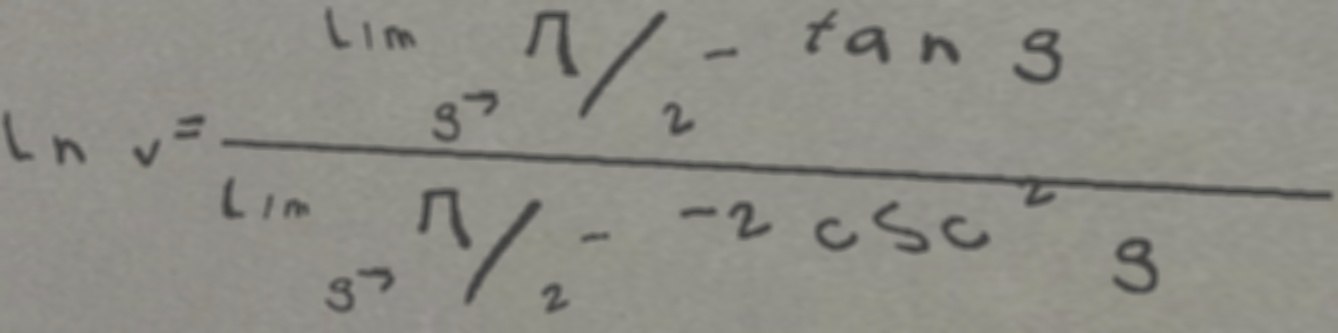 ln v = \frac{\lim_{g \to \pi/2^-} \tan g}{\lim_{g \to \pi/2^-} -2 \csc^2 g}